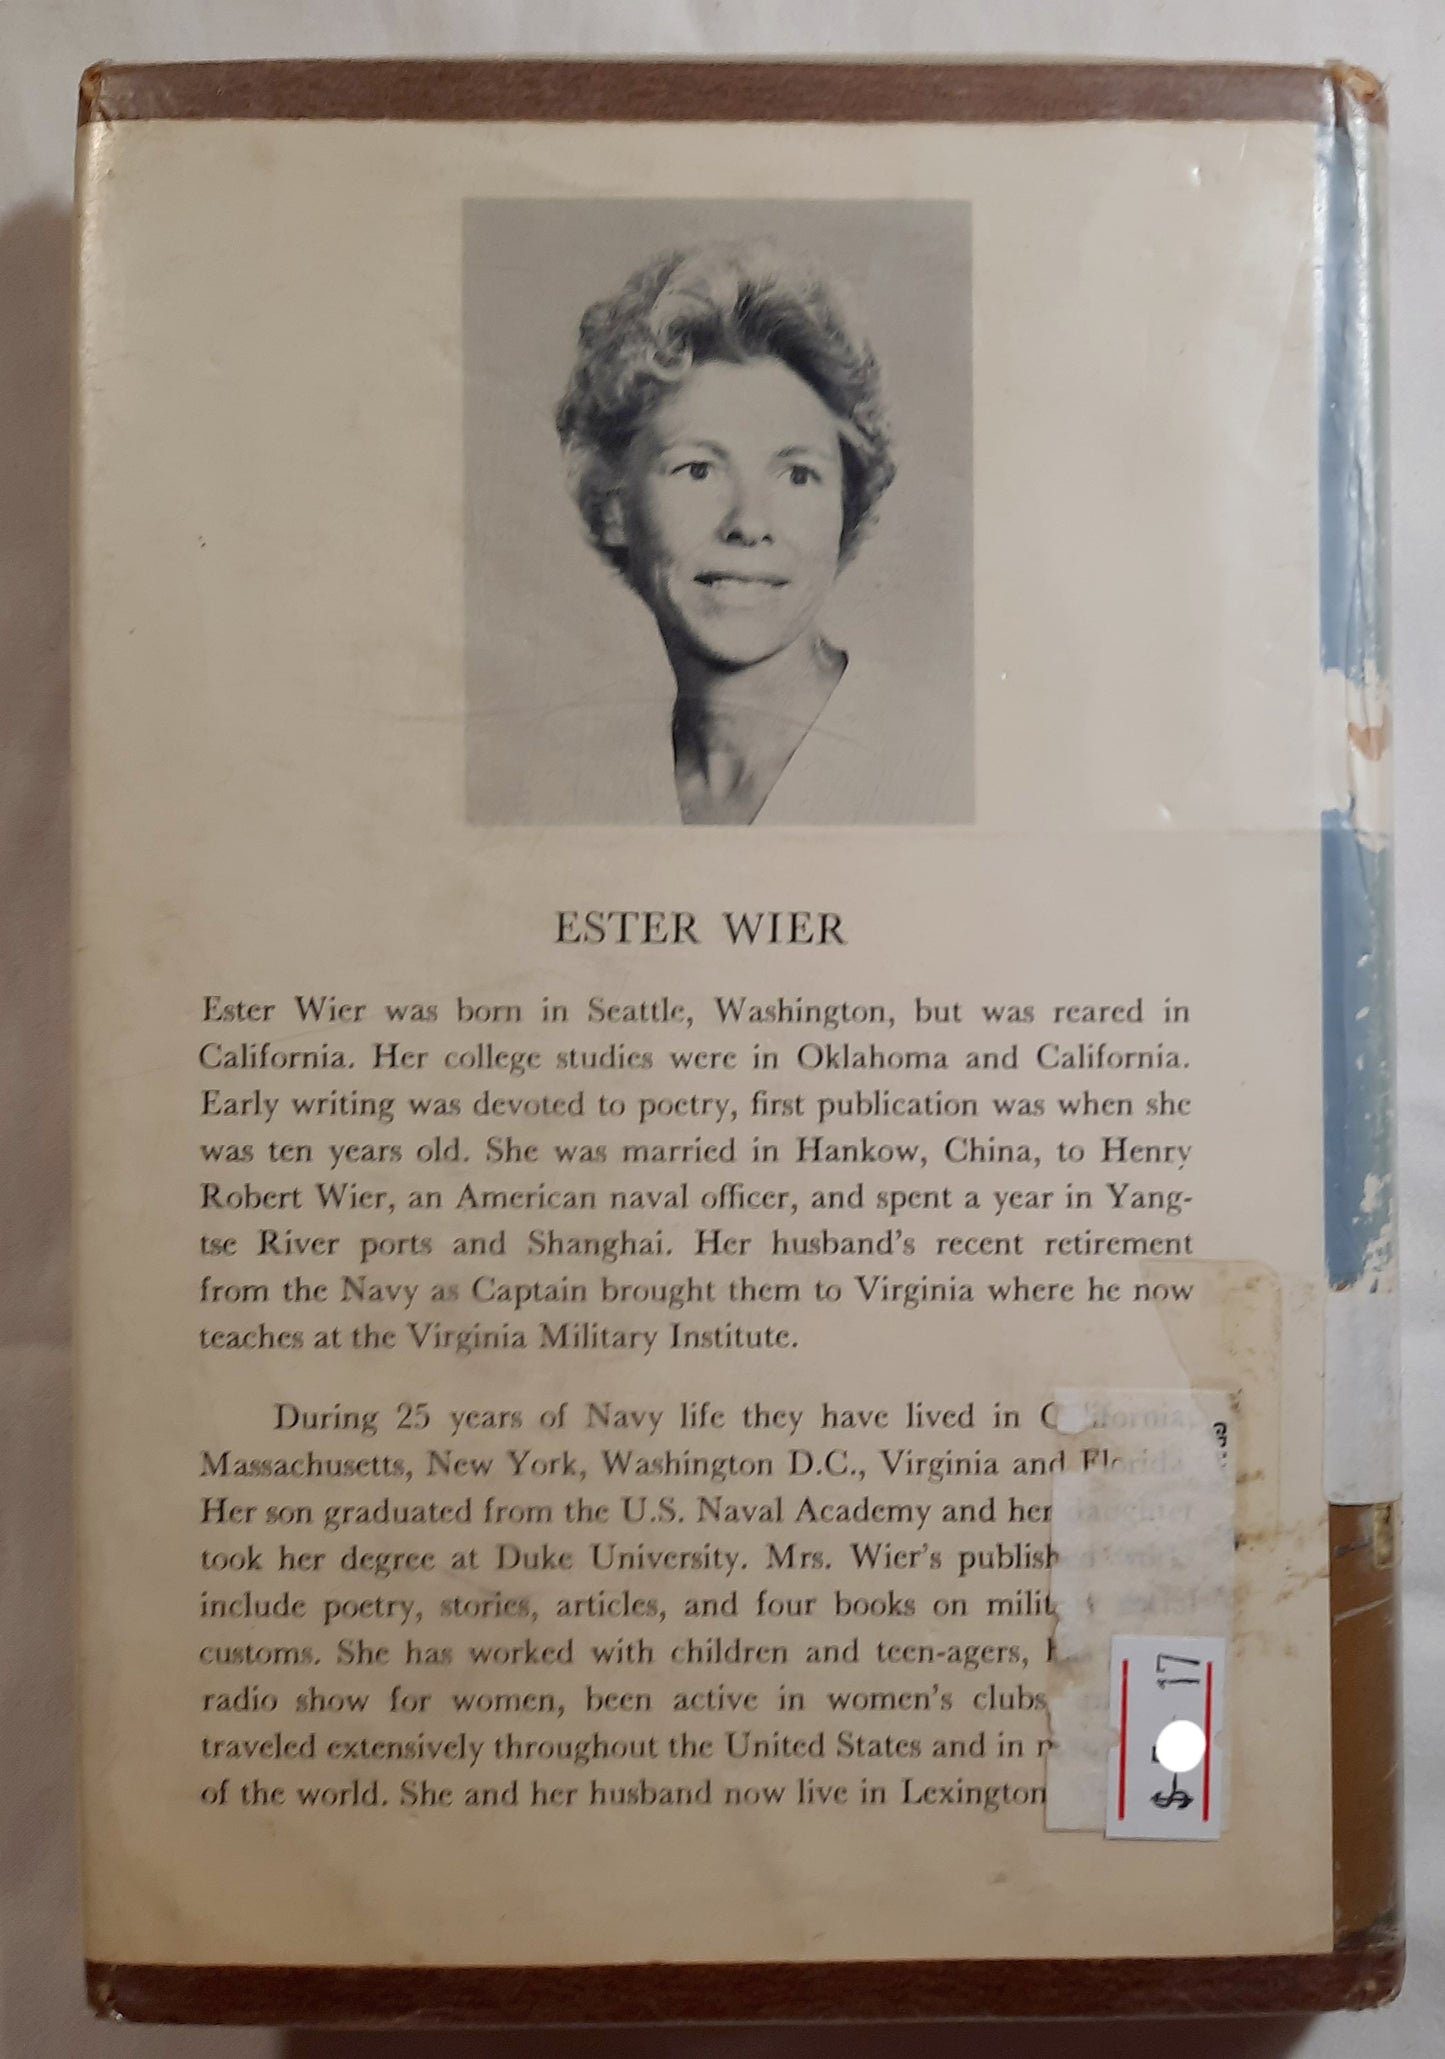 ESTER WIER
Ester Wier was born in Seattle, Washington, but was reared in
California. Her college studies were in Oklahoma and California.
Early writing was devoted to poetry, first publication was when she
was ten years old. She was married in Hankow, China, to Henry
Robert Wier, an American naval officer, and spent a year in Yang-
tse River ports and Shanghai. Her husband's recent retirement
from the Navy as Captain brought them to Virginia where he now
teaches at the Virginia Military Institute.
During 25 years of Navy life they have lived in California,
Massachusetts, New York, Washington D.C., Virginia and Florida.
Her son graduated from the U.S. Naval Academy and her daughter
took her degree at Duke University. Mrs. Wier's
include poetry, stories, articles, and four books on
customs. She has worked with children and teen-agers,
radio show for women, been active in women's clubs
traveled extensively throughout the United States and in
of the world. She and her husband now live in Lexington
$ 17